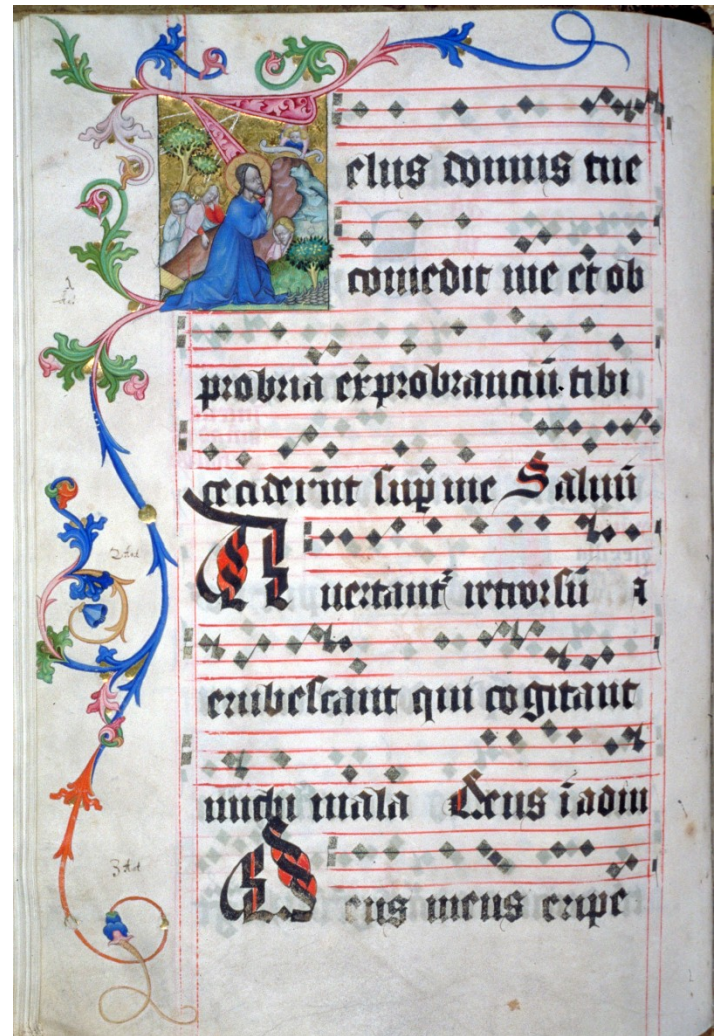 Zelus domus tue
comedit me et ob
probria exprobranciū tibi
ceciderūt sup me Saluū
Auertant᷑ retrorsū ⁊
erubescant qui cogitant
michi mala Deus ī adiu
Deus meus eripe
1 Ant
2 Ant
3 Ant